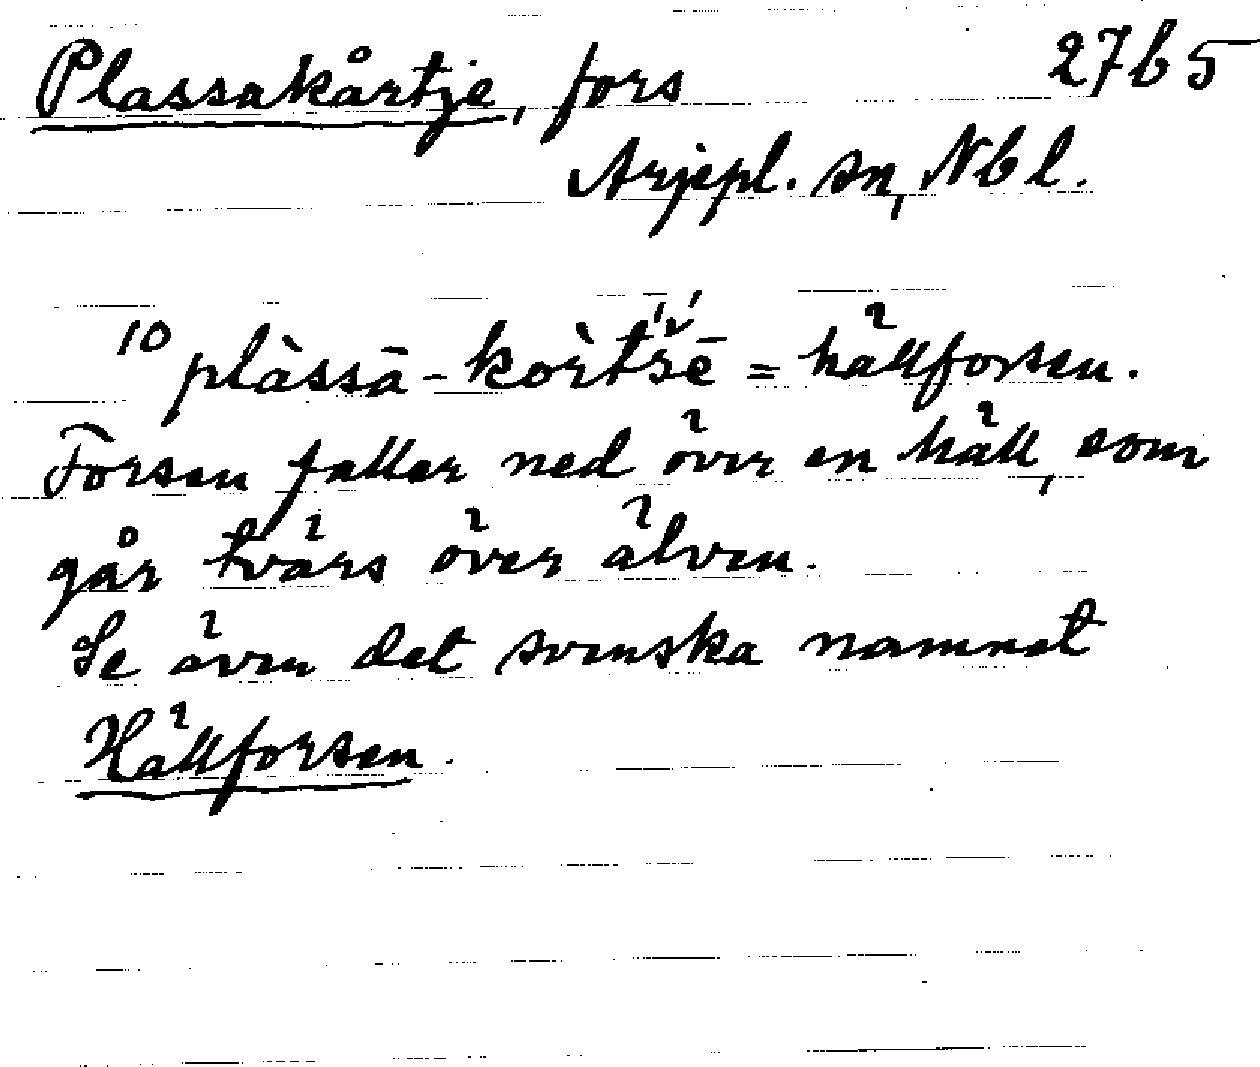 Plassakårtje, fors 27b5
Arjepl. sn, Nbl.
10 plàssā-kòrt́š́ē = hällforsen.
Forsen faller ned över en häll, som
går tvärs över älven.
Se även det svenska namnet
Hällforsen.